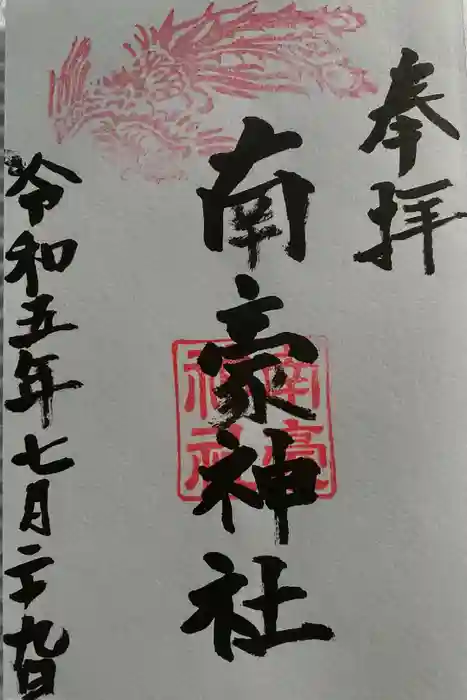 奉拝
南豪神社
南豪神社
令和五年七月二十九日